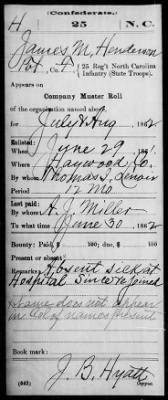 (Confederate.)
H 25 N.C.
James M. Henderson
Pvt, Co. F, 25 Reg't North Carolina
Infantry (State Troops).
Appears on
Company Muster Roll
of the organization named above,
for July & Aug, 1862.
Enlisted:
When June 29, 1861.
Where Haywood Co.
By whom Thomas I. Lenoir
Period 12 Mo
Last paid:
By whom A. J. Miller
To what time June 30, 1862.
Bounty: Paid $ 100; due $ 100
Present or absent
Remarks: Absent sick at
Hospital Since rejoined
Name does not appear
in col of names present
Book mark:
J. B. Hyatt
(642) Copyist.